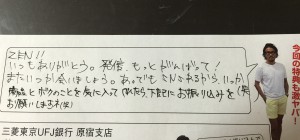 ZEN!!
いつもありがとう。発信、もっとがんばって!
またいつか会いましょう。あ、でもこりごりかなら、いつか
商品とボクのことを気に入ってくれたら、下記にお振り込みを
お願いします(笑)
三菱東京UFJ銀行 原宿支店
今回の特典も激ヤバ